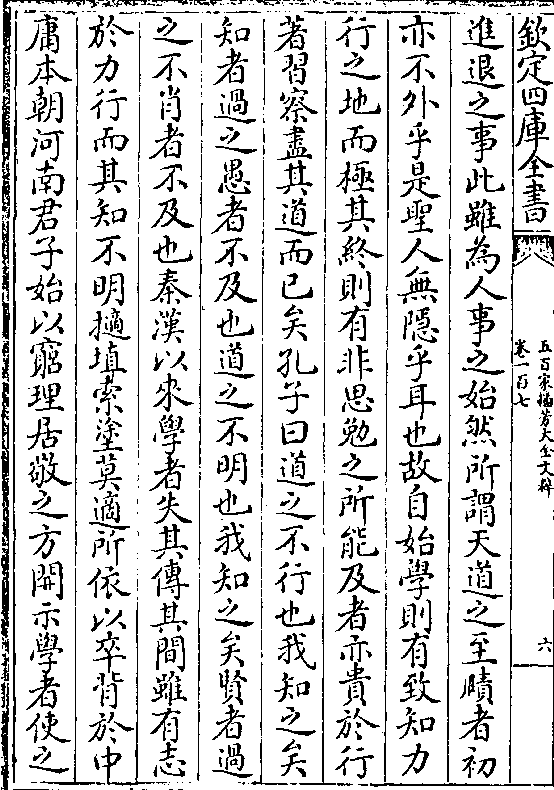 欽定四庫全書
五百家播芳大全文粹
卷一百七
六
進退之事此雖為人事之始然所謂天道之至賾者初
亦不外乎是聖人無隱乎耳也故自始學則有致知力
行之地而極其終則有非思勉之所能及者亦貴於行
著習察盡其道而已矣孔子曰道之不行也我知之矣
知者過之愚者不及也道之不明也我知之矣賢者過
之不肖者不及也秦漢以來學者失其傳其間雖有志
於力行而其知不明擿埴索塗莫適所依以卒背於中
庸本朝河南君子始以窮理居敬之方開示學者使之